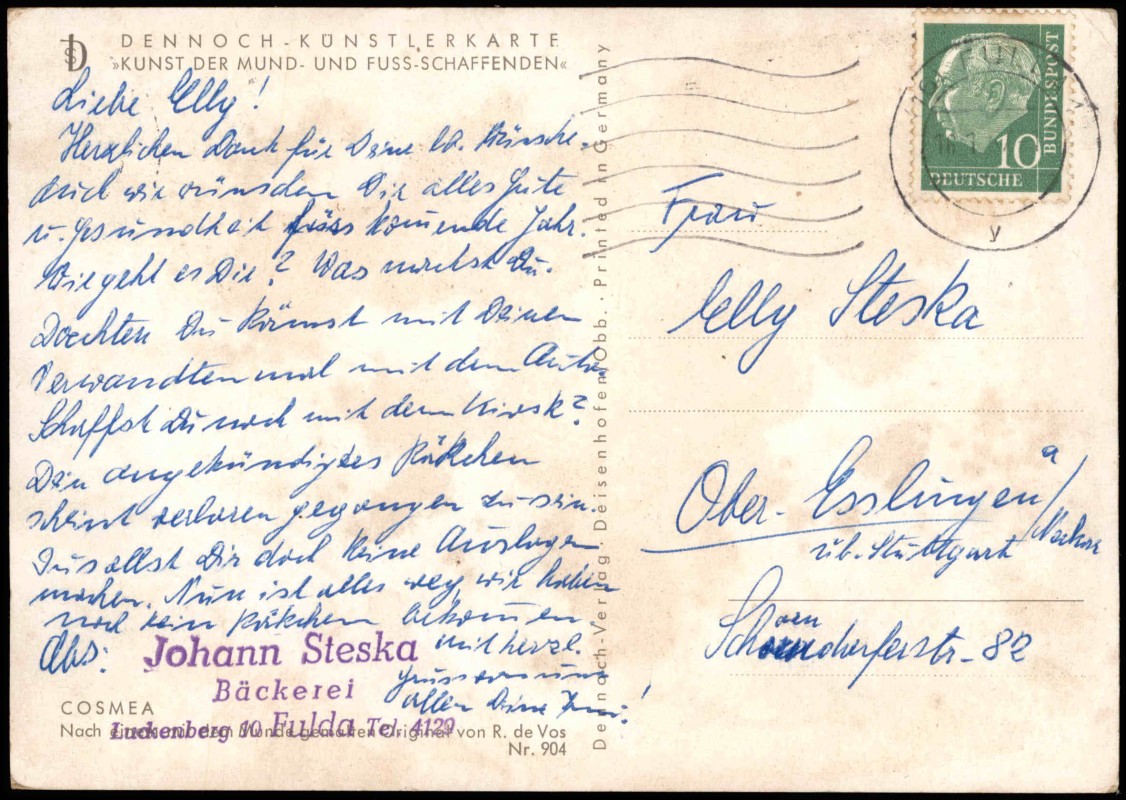 DENNOCH-KÜNSTLERKARTE
»KUNST DER MUND- UND FUSS-SCHAFFENDEN«
Liebe Elly!
Herzlichen Dank für Deine lb. Wünsche.
Auch wir wünschen Dir alles Gute
u. Gesundheit fürs komende Jahr.
Wie geht es Dir? Was machst Du.
Du könnst mit Deinen
Verwandten mal mit dem Auto.
Schaffst Du noch mit dem Kiosk?
Dein angekündigtes Päkchen
scheint verloren gegangen zu sein.
Du sollst Dir doch keine Auslagen
machen. Nun ist alles weg, wir haben
noch kein Päkchen bekomen.
Mit herzl.
Grüssen uns
allen Deine !
Abs:
Johann Steska
Bäckerei
Luckenberg 10 Fulda Tel. 4129
COSMEA
Nach einem mit dem Munde gemalten Original von R. de Vos
Nr. 904
Dennoch-Verlag · Deisenhofen/Obb. · Printed in Germany
DEUTSCHE
BUNDESPOST
10
y
Frau
Elly Steska
Ober-Esslingen a/Neckar
üb. Stuttgart
Schorndorferstr-82